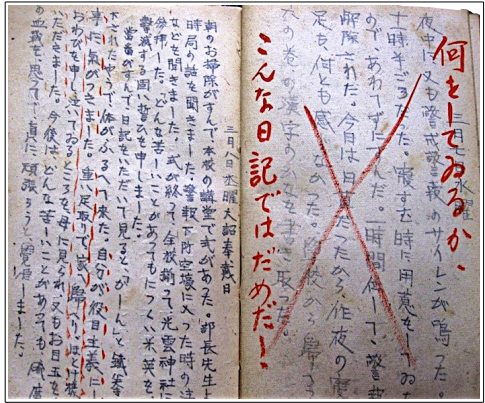 三月七日 水曜
夜中に又も警戒警報のサイレンが鳴った。
十時半ごろだった。寝す時に用意をしてゐた
ので、あわてずにすんだ。一時間位して、警報
解除された。今日は日だったから、作夜の寝
足を、何とも感じなかった。学校から帰って
次の巻の漢字のかなを書き取った。
何をしてゐるか、
こんな日記ではだめだ!
三月八日 水曜 大詔奉戴日
朝のお掃除がすんで本校の講堂で式があった。部長先生と
時局の話を聞きました。警報下防空壕に入った時の注
などを聞きました。式が終って、全校揃って光雲神社に
参拝した。どんな苦しいことがあってもにっくい米英を、
撃滅する固い誓ひを申しました。
当番がすんで、日記をいただいて見ると、がーんと鉄拳
下されたやうで、体がふるへて来た。自分が役目主義に
事に気がつきました。重い足取りで家へ帰り、
おわびを申してゐるところを母に見られ、又もお目玉を
いただきました。今後は、どんな苦しいことがあっても、
の血戦を、思って、一直に頑張らうと覚悟しました。